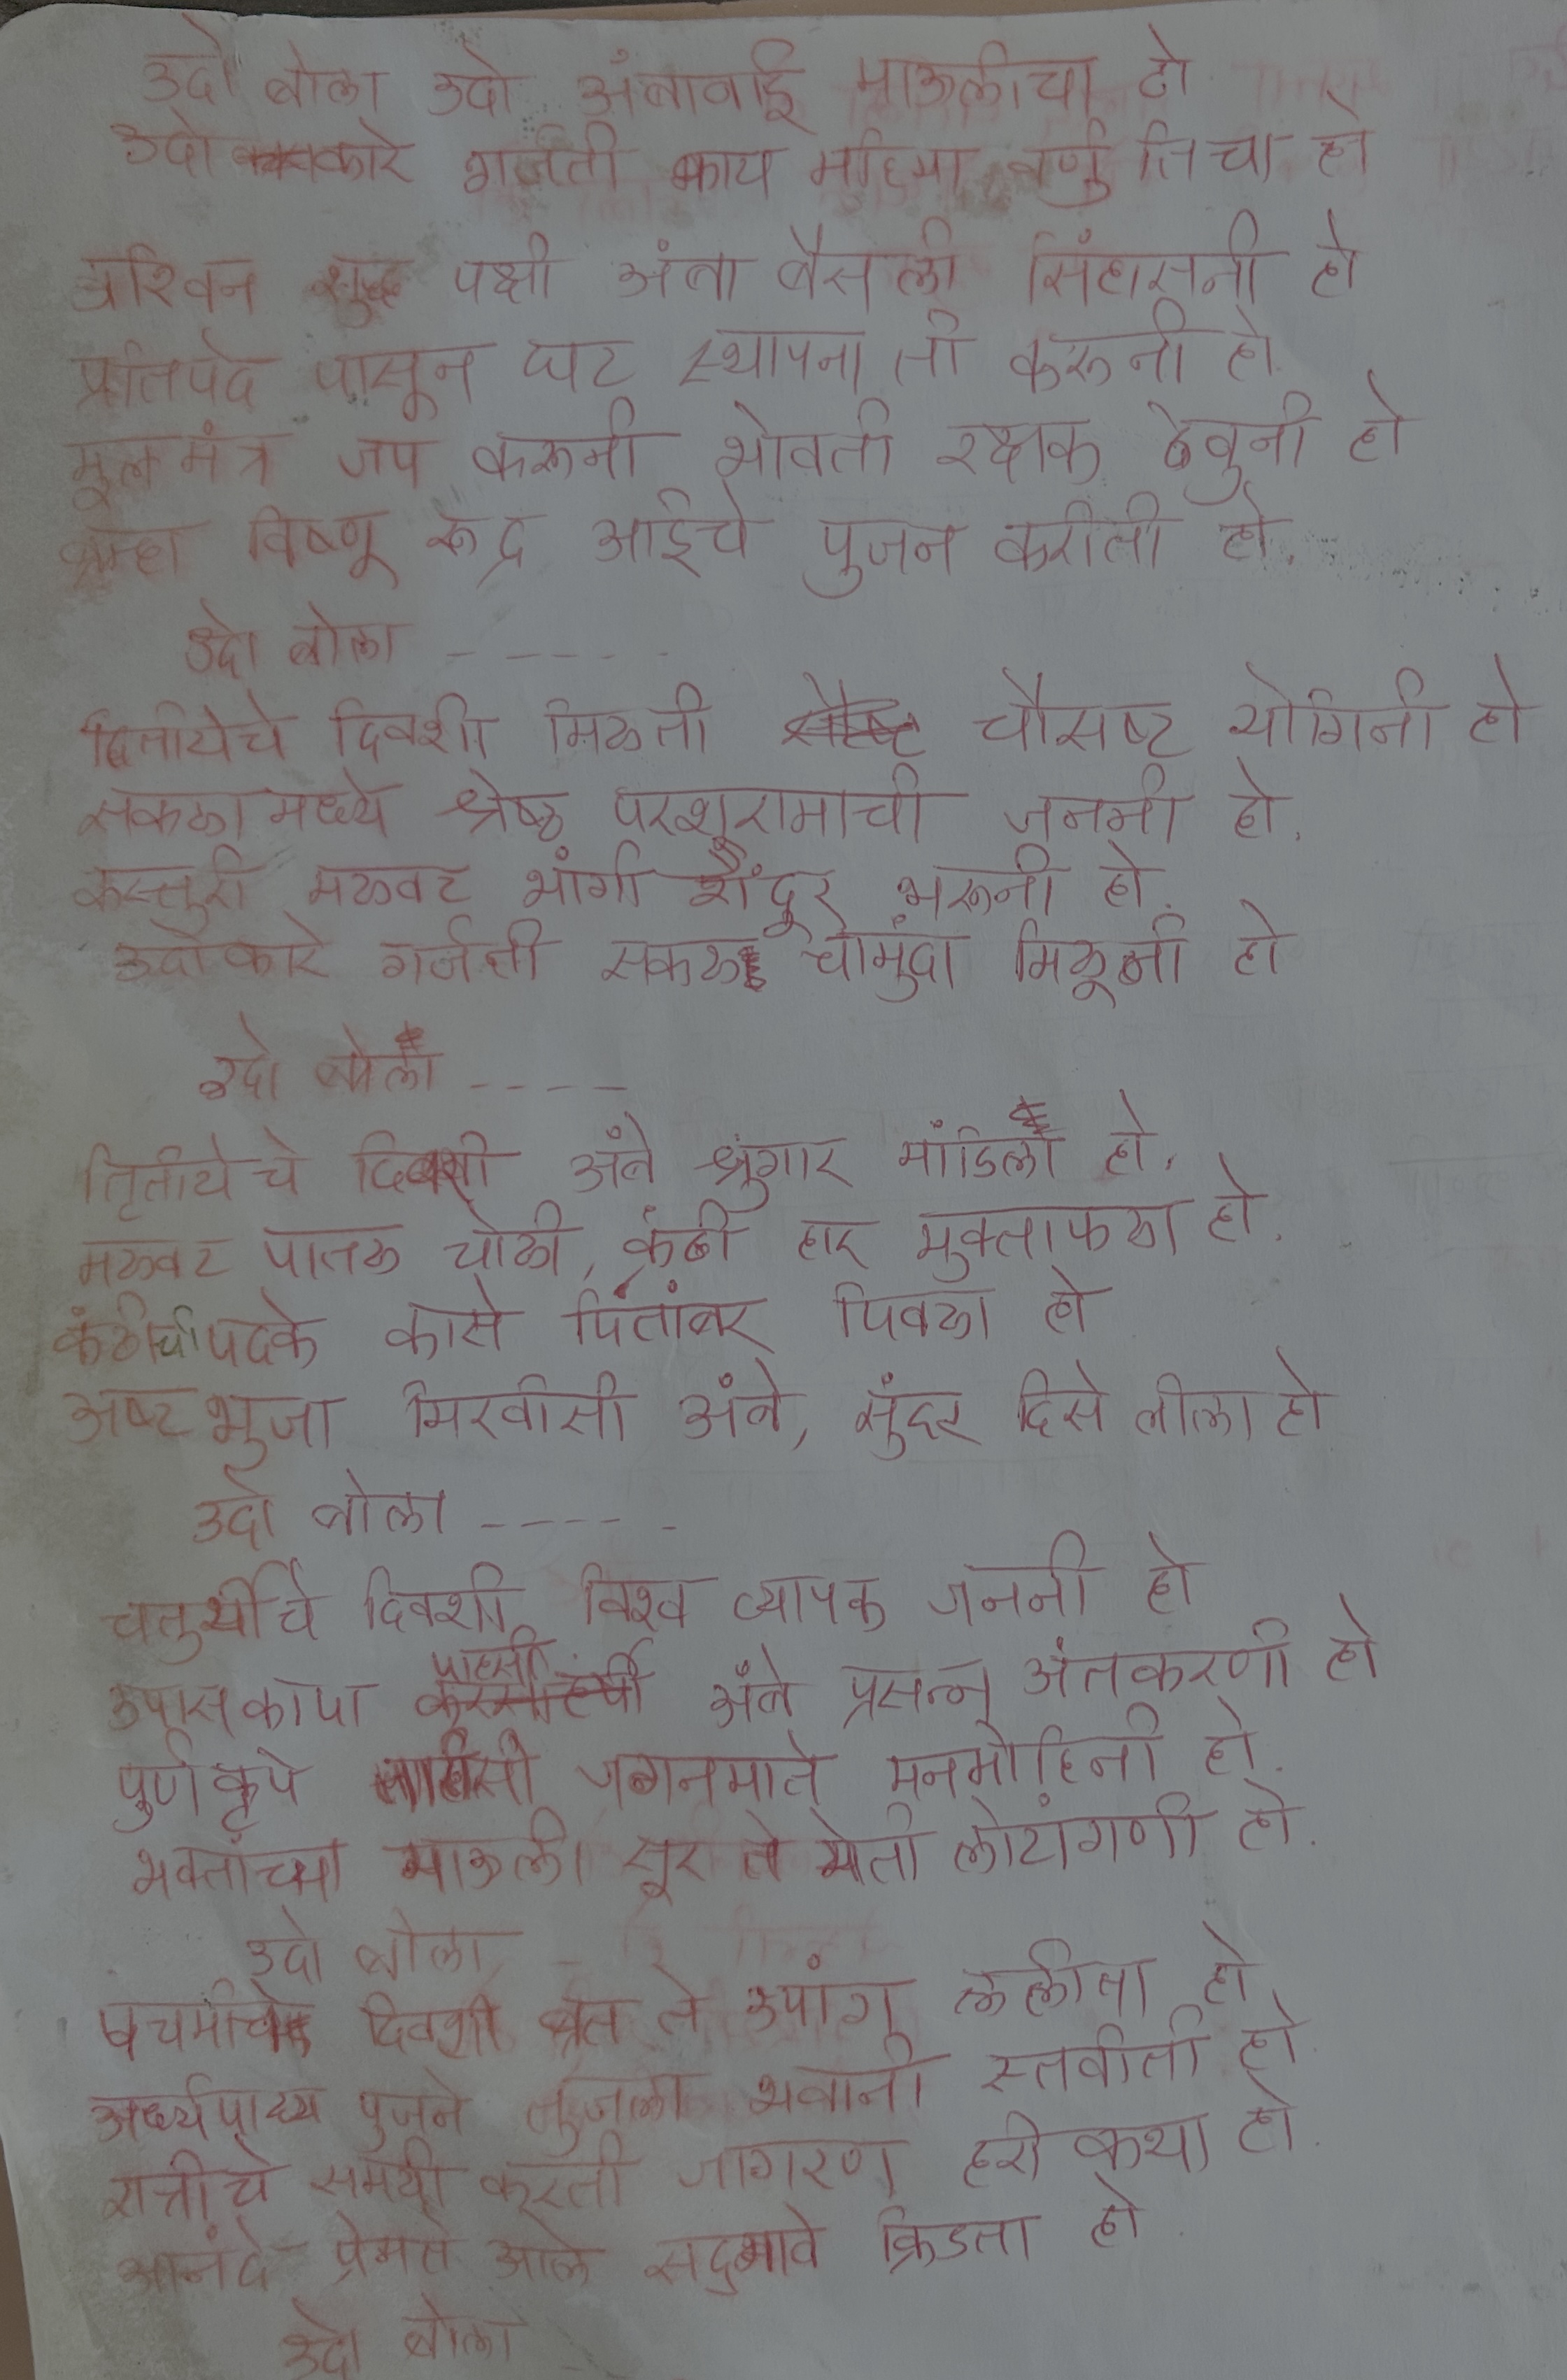 उदो बोला उदो अंबाबाई माऊलीचा हो
उदोकारे गर्जती काय महिमा वर्णु तिचा हो
अश्विन शुद्ध पक्षी अंबा बैसली सिंहासनी हो
प्रतिपदे पासून घट स्थापना ती करूनी हो.
मूलमंत्र जप करूनी भोवती रक्षक ठेवुनी हो
ब्रम्हा विष्णू रूद्र आईचे पुजन करीती हो.
उदो बोला -----
द्वितीयेचे दिवशी मिळती चौसष्ट योगिनी हो
सकळामध्ये श्रेष्ठ परशुरामाची जननी हो.
कस्तुरी मळवट भांगी शेंदूर भरूनी हो.
उदोकारे गर्जती सकळ चामुंडा मिळूनी हो
उदो बोला ----
तृितीयेचे दिवशी अंबे श्रुंगार मांडिला हो.
मळवट पातळ चोळी, कंठी हार मुक्ताफळा हो.
कंठीची पदके कासे पितांबर पिवळा हो
अष्टभुजा मिरवीसी अंबे, सुंदर दिसे लीला हो
उदो बोला -----
चतुर्थीचे दिवशी विश्व व्यापक जननी हो
उपासका पाहसी अंबे प्रसन्न अंतकरणी हो
पुर्णकृपे जगनमाते मनमोहिनी हो.
भक्तांच्या माऊली सूर ते येती लोटांगणी हो.
उदो बोला
पंचमीचे दिवशी व्रत ते उपांग ललीता हो.
अर्ध्यपाद्य पुजने तुजला भवानी स्तवीती हो.
रात्रीचे समयी करती जागरण हरी कथा हो.
आनंदे प्रेमते आले सद्भावे क्रिडता हो.
उदो बोला